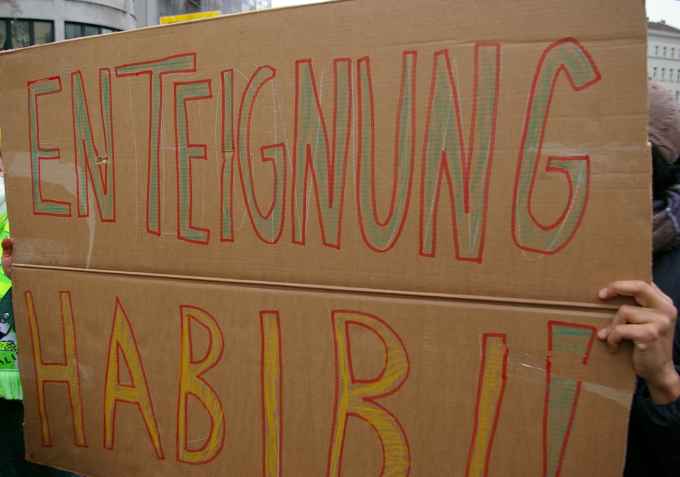 ENTEIGNUNG
HABIBI!